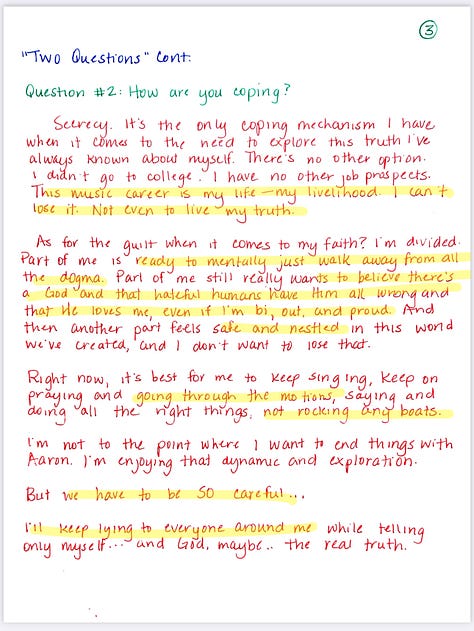 3
"Two Questions" Cont.
Question #2: How are you coping?
Secrecy. It's the only coping mechanism I have
when it comes to the need to explore this truth I've
always known about myself. There's no other option.
I didn't go to college. I have no other job prospects.
This music career is my life – my livelihood. I can't
lose it. Not even to live my truth.
As for the guilt when it comes to my faith? I'm divided.
Part of me is ready to mentally just walk away from all
the dogma. Part of me still really wants to believe there's
a God and that hateful humans have Him all wrong and
that He loves me, even if I'm bi, out, and proud. And
then another part feels safe and nestled in this world
we've created, and I don't want to lose that.
Right now, it's best for me to keep singing, keep on
praying and going through the motions, saying and
doing all the right things, not rocking any boats.
I'm not to the point where I want to end things with
Aaron. I'm enjoying that dynamic and exploration.
But we have to be SO careful...
I'll keep lying to everyone around me while telling
only myself... and God, maybe.. the real truth.